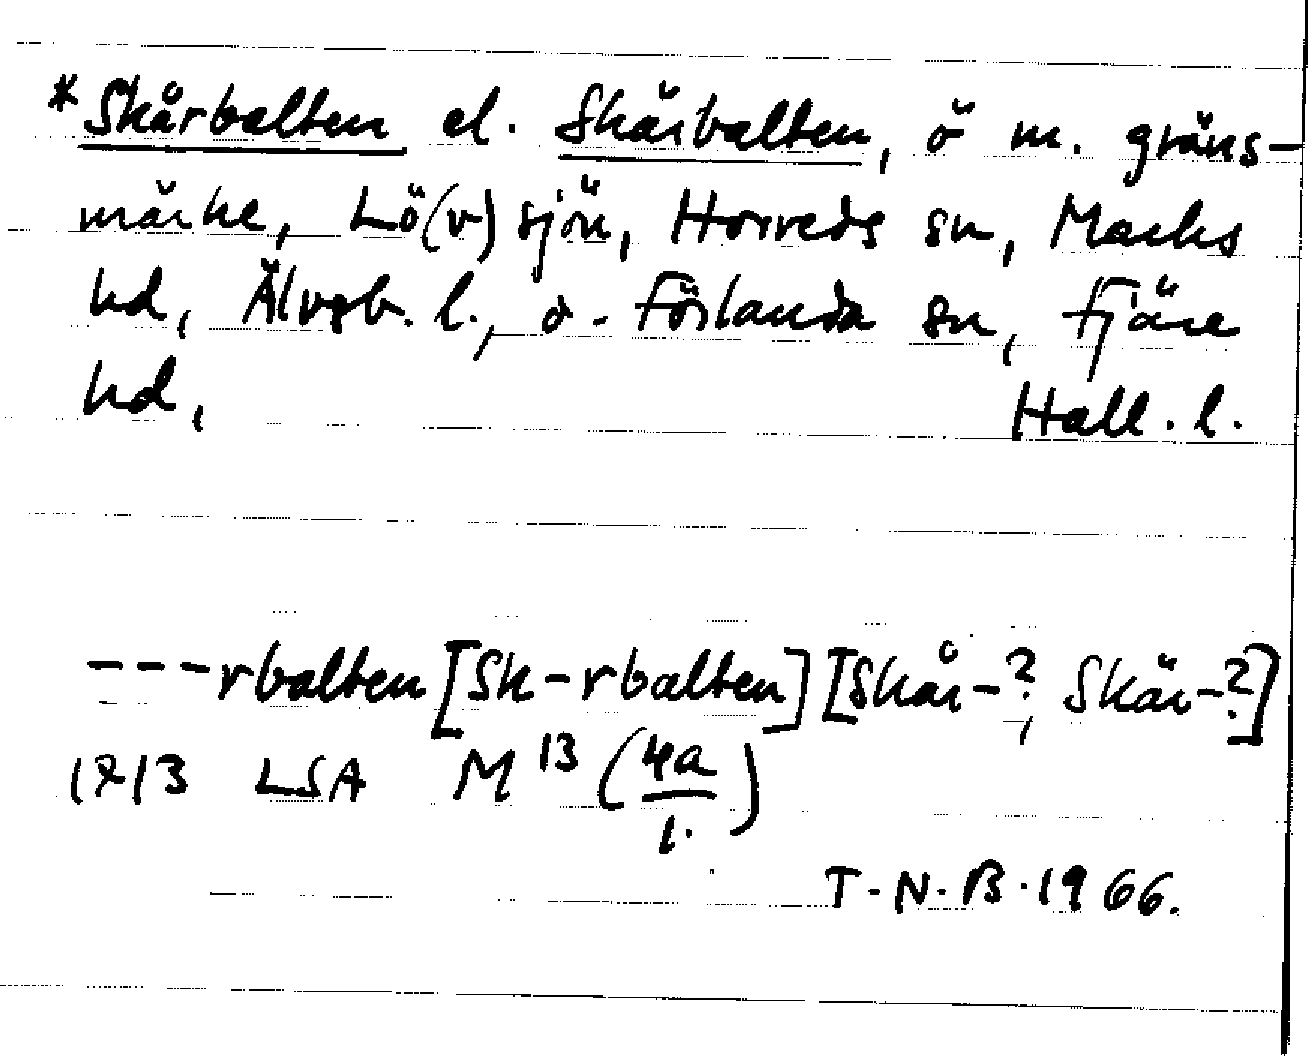 *Skårbalten el. Skärbalten, ö m. gräns-
märke, Lö(v)sjön, Horreds sn, Marks
hd, Älvsb. l., o. Förlanda sn, Fjäre
hd, Hall. l.
---rbalten [Sk-rbalten] [Skår-?, Skär-?]
1713 LSA M 13 (4a/1.)
T.N.B. 1966.